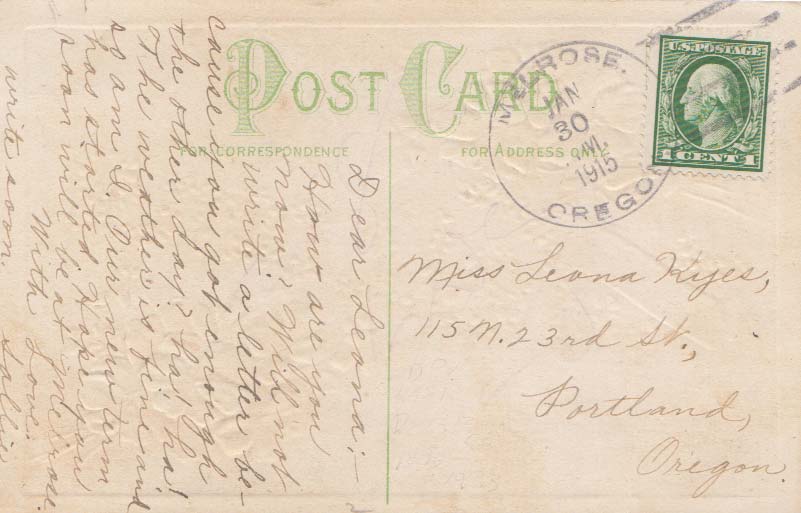 POST CARD
FOR CORRESPONDENCE
FOR ADDRESS ONLY
MELROSE.
JAN
30
M.
1915
OREGON
U.S. POSTAGE
1 CENT 1
Dear Leona:-
How are you
now? Will not
write a letter be-
cause you got enough
the other day? ha! ha!
The weather is fine and
so am I. Our new term
has started. Hope you
soon will be at Melrose.
With Love
Sallie
write soon.
Miss Leona Kyes,
115 N. 23rd St.,
Portland,
Oregon.